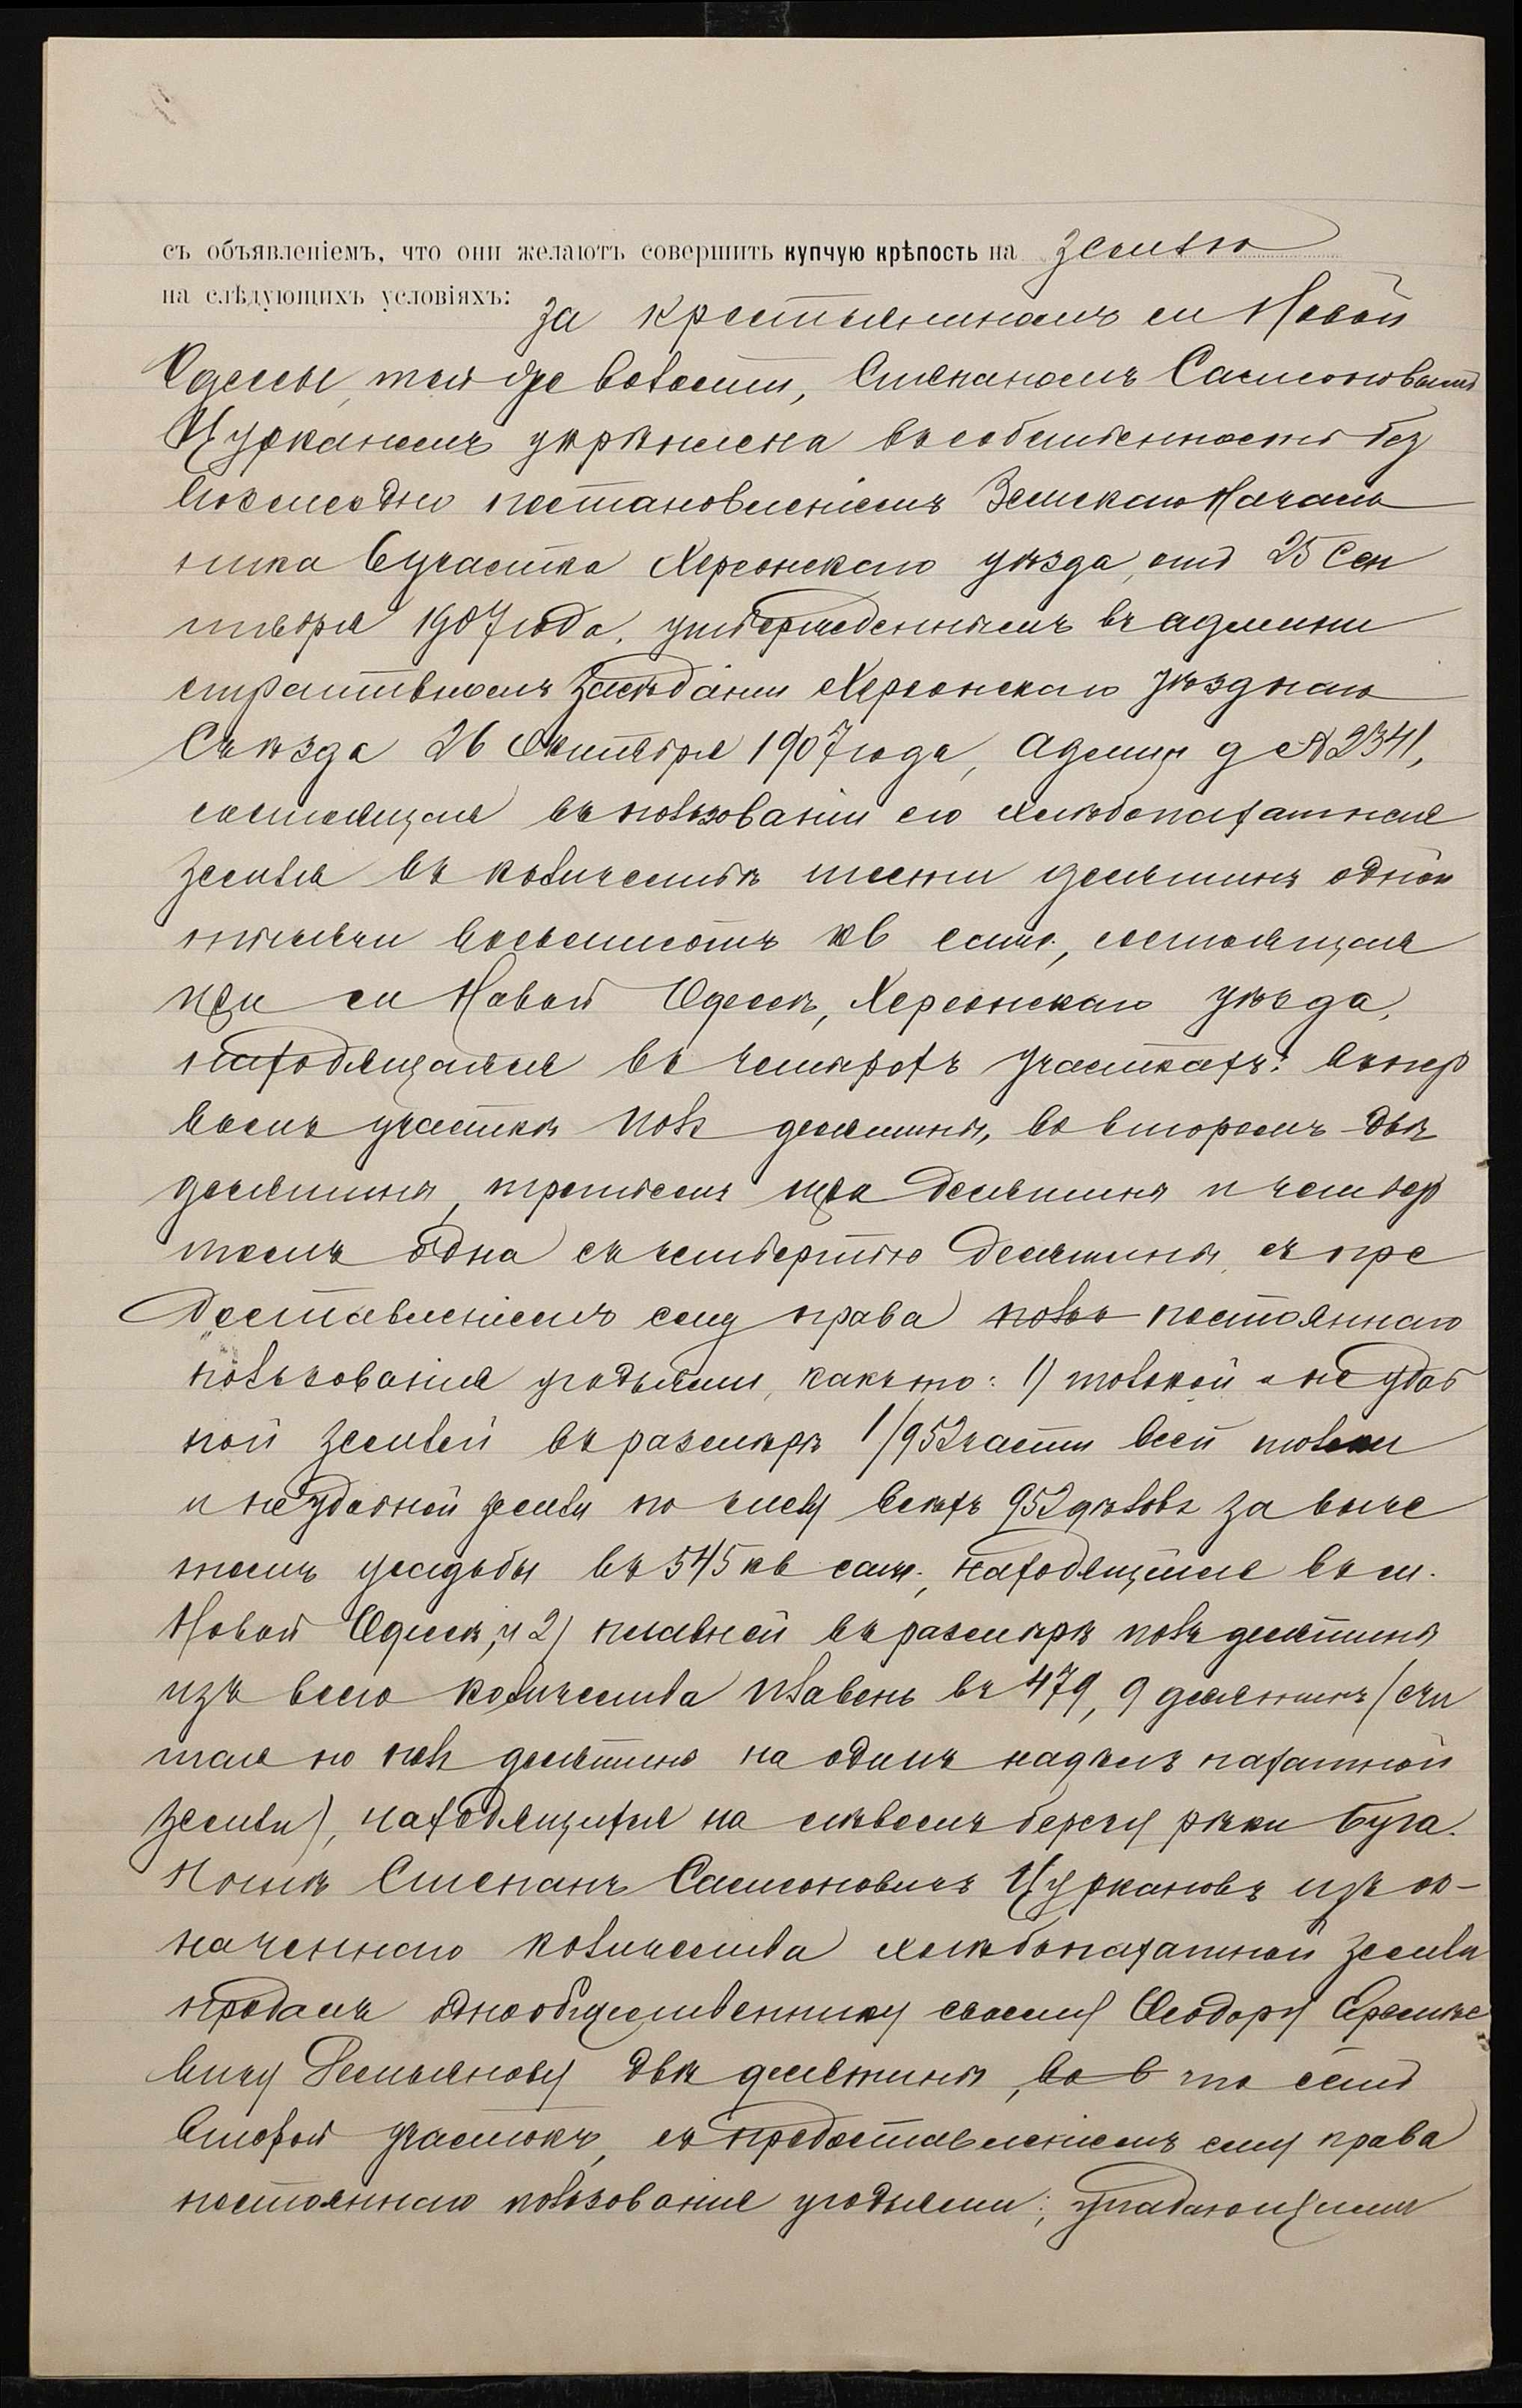 съ объявленіемъ, что они желаютъ совершить купчую крѣпость на землю
на слѣдующихъ условіяхъ: За крестьяниномъ м Новой
Одессы, той же волости, Степаномъ Самсоновымъ
Цуркановымъ укрѣплена въ собственность без
возмездно постановленіемъ Земскаго Началь
ника 6 участка Херсонскаго уѣзда, отъ 25 Сен
тября 1907 года, утвержденнымъ въ админи
стративномъ засѣданіи Херсонскаго уѣзднаго
Съѣзда 26 Октября 1907 года, админ д № 2341,
состоящая въ пользованіи его хлѣбопахатная
земля въ количествѣ шести десятинъ одной
тысячи восьмисотъ кв саж., состоящая
при м Новой Одессѣ, Херсонскаго уѣзда,
находящаяся въ четырехъ участкахъ: въ пер
вомъ участкѣ полъ десятины, во второмъ двѣ
десятины, третьемъ три десятины и четвер
томъ одна съ четвертью десятины, съ пре
доставленіемъ ему права польз постояннаго
пользованія угодьями, какъ то: 1) толокой и неудоб
ной землей въ размѣрѣ 1/952 части всей толоки
и неудобной земли по числу всѣхъ 952 дѣловъ за выче
томъ усадьбы въ 545 кв саж., находящейся въ м.
Новой Одессѣ, и 2) плавней въ размѣрѣ полъ десятины
изъ всего количества плавень въ 479,9 десятинъ (счи
тая по полъ десятины на одинъ надѣлъ пахатной
земли), находящихся на лѣвомъ берегу рѣки Буга.
Нынѣ Степанъ Самсоновичъ Цуркановъ изъ оз-
наченнаго количества хлѣбопахатной земли
продалъ однообщественнику своему Ѳеодору Еремѣе
вичу Демьянову двѣ десятины, во в то есть
второй участокъ, съ предоставленіемъ ему права
постояннаго пользованія угодьями, упадающими